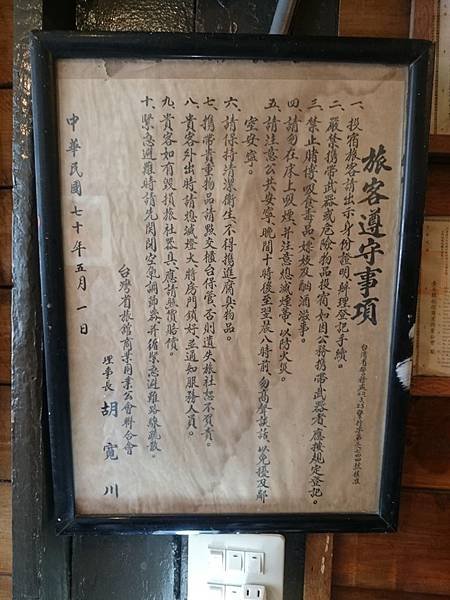 旅客遵守事項
一、投宿旅客請出示身份證明辦理登記手續。
二、嚴禁携帶武器或危險物品投宿，如因公務携帶武器者，應按規定登記。
三、禁止賭博吸食毒品、嫖妓及酗酒滋事。
四、請勿在床上吸煙并注意熄滅煙蒂，以防火災。
五、請注意公共安寧，晚間十時後至翌晨八時前，勿高聲談話，以免擾及鄰
室安寧。
六、請保持清潔衛生，不得携進腐臭物品。
七、携帶貴重物品請點交櫃台保管，否則遺失旅社恕不負責。
八、貴客外出時請熄滅燈火將房門鎖好並通知服務人員。
九、貴客如有毀損旅社器具，應請照價賠償。
十、緊急避難時請先關閉空氣調節器，并循緊急避難路線疏散。
台灣省旅館商業同業公會聯合會
理事長 胡寬川
中華民國七十年五月一日